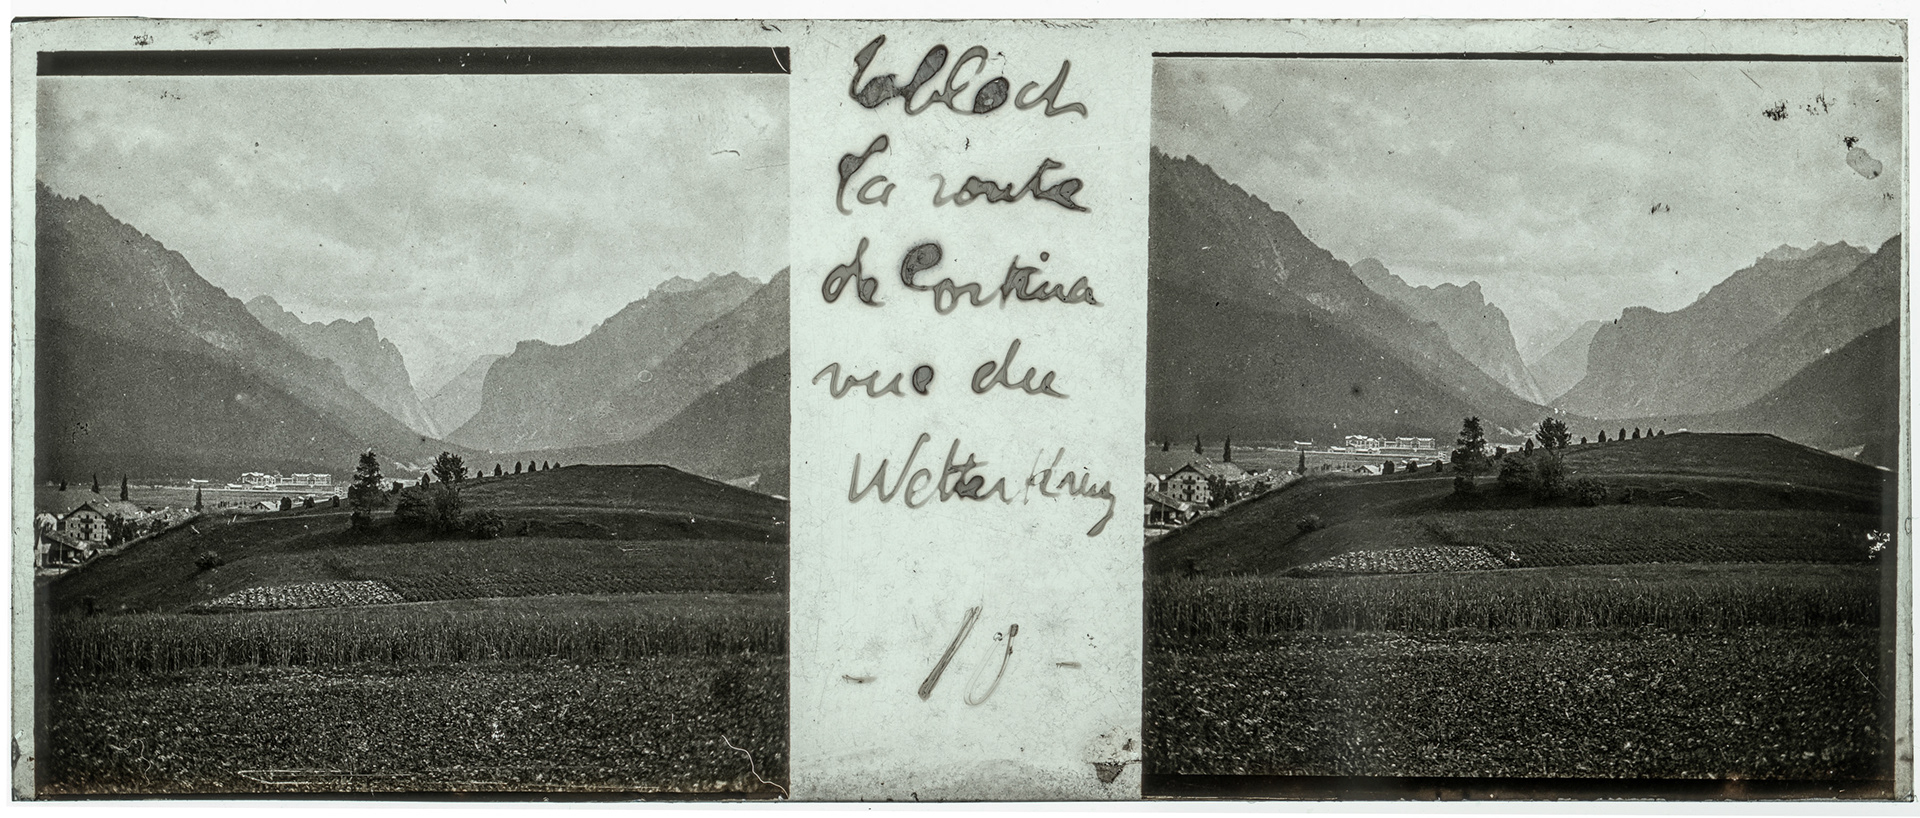 Toblach
la route
de Cortina
vue du
Wetter Kreuz